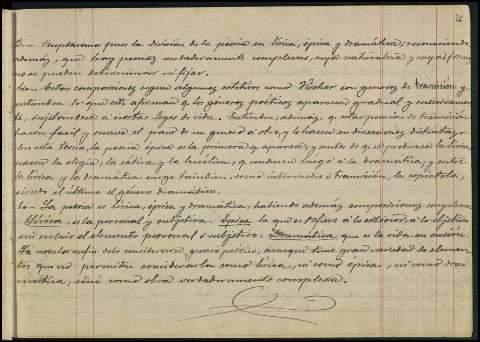 26
Aceptaremos pues la división de la poesía en lírica, épica y dramática, reconociendo,
además, que hay poemas verdaderamente complexos, cuya naturaleza y cuya forma
no se pueden determinar ni fijar.
Estas composiciones según algunos estéticos como Vischer son géneros de transición y
entienden los que esto afirman q. los géneros poéticos aparecen gradual y sucesivamen-
te, sujetándose a ciertas leyes de vida. Entienden, además, q. estas poesías de transición
hacen fácil y suave el paso de un género a otro, y lo hacen en direcciones distintas; pa-
esta la poesía épica es la primera q. aparece, y antes de q. se produzca la lírica
nacen la elegía, la sátira y la bucólica, q. conducen luego a la dramática; y entre
la lírica y la dramática surge también, como intermedio o transición, la epístola,
siendo el último el género dramático.
La poesía es lírica, épica y dramática, habiendo además composiciones complexas.
Lírica, es la personal y subjetiva. Épica la que se refiere a lo exterior, a lo objetivo
sin excluir el elemento personal o subjetivo. Dramática, que es la vida en acción.
La novela debe considerarse género poético, aunque tiene gran variedad de elemen-
tos que no permiten considerarla como lírica, ni como épica, ni como dra-
mática, sino como obra verdaderamente complexa.